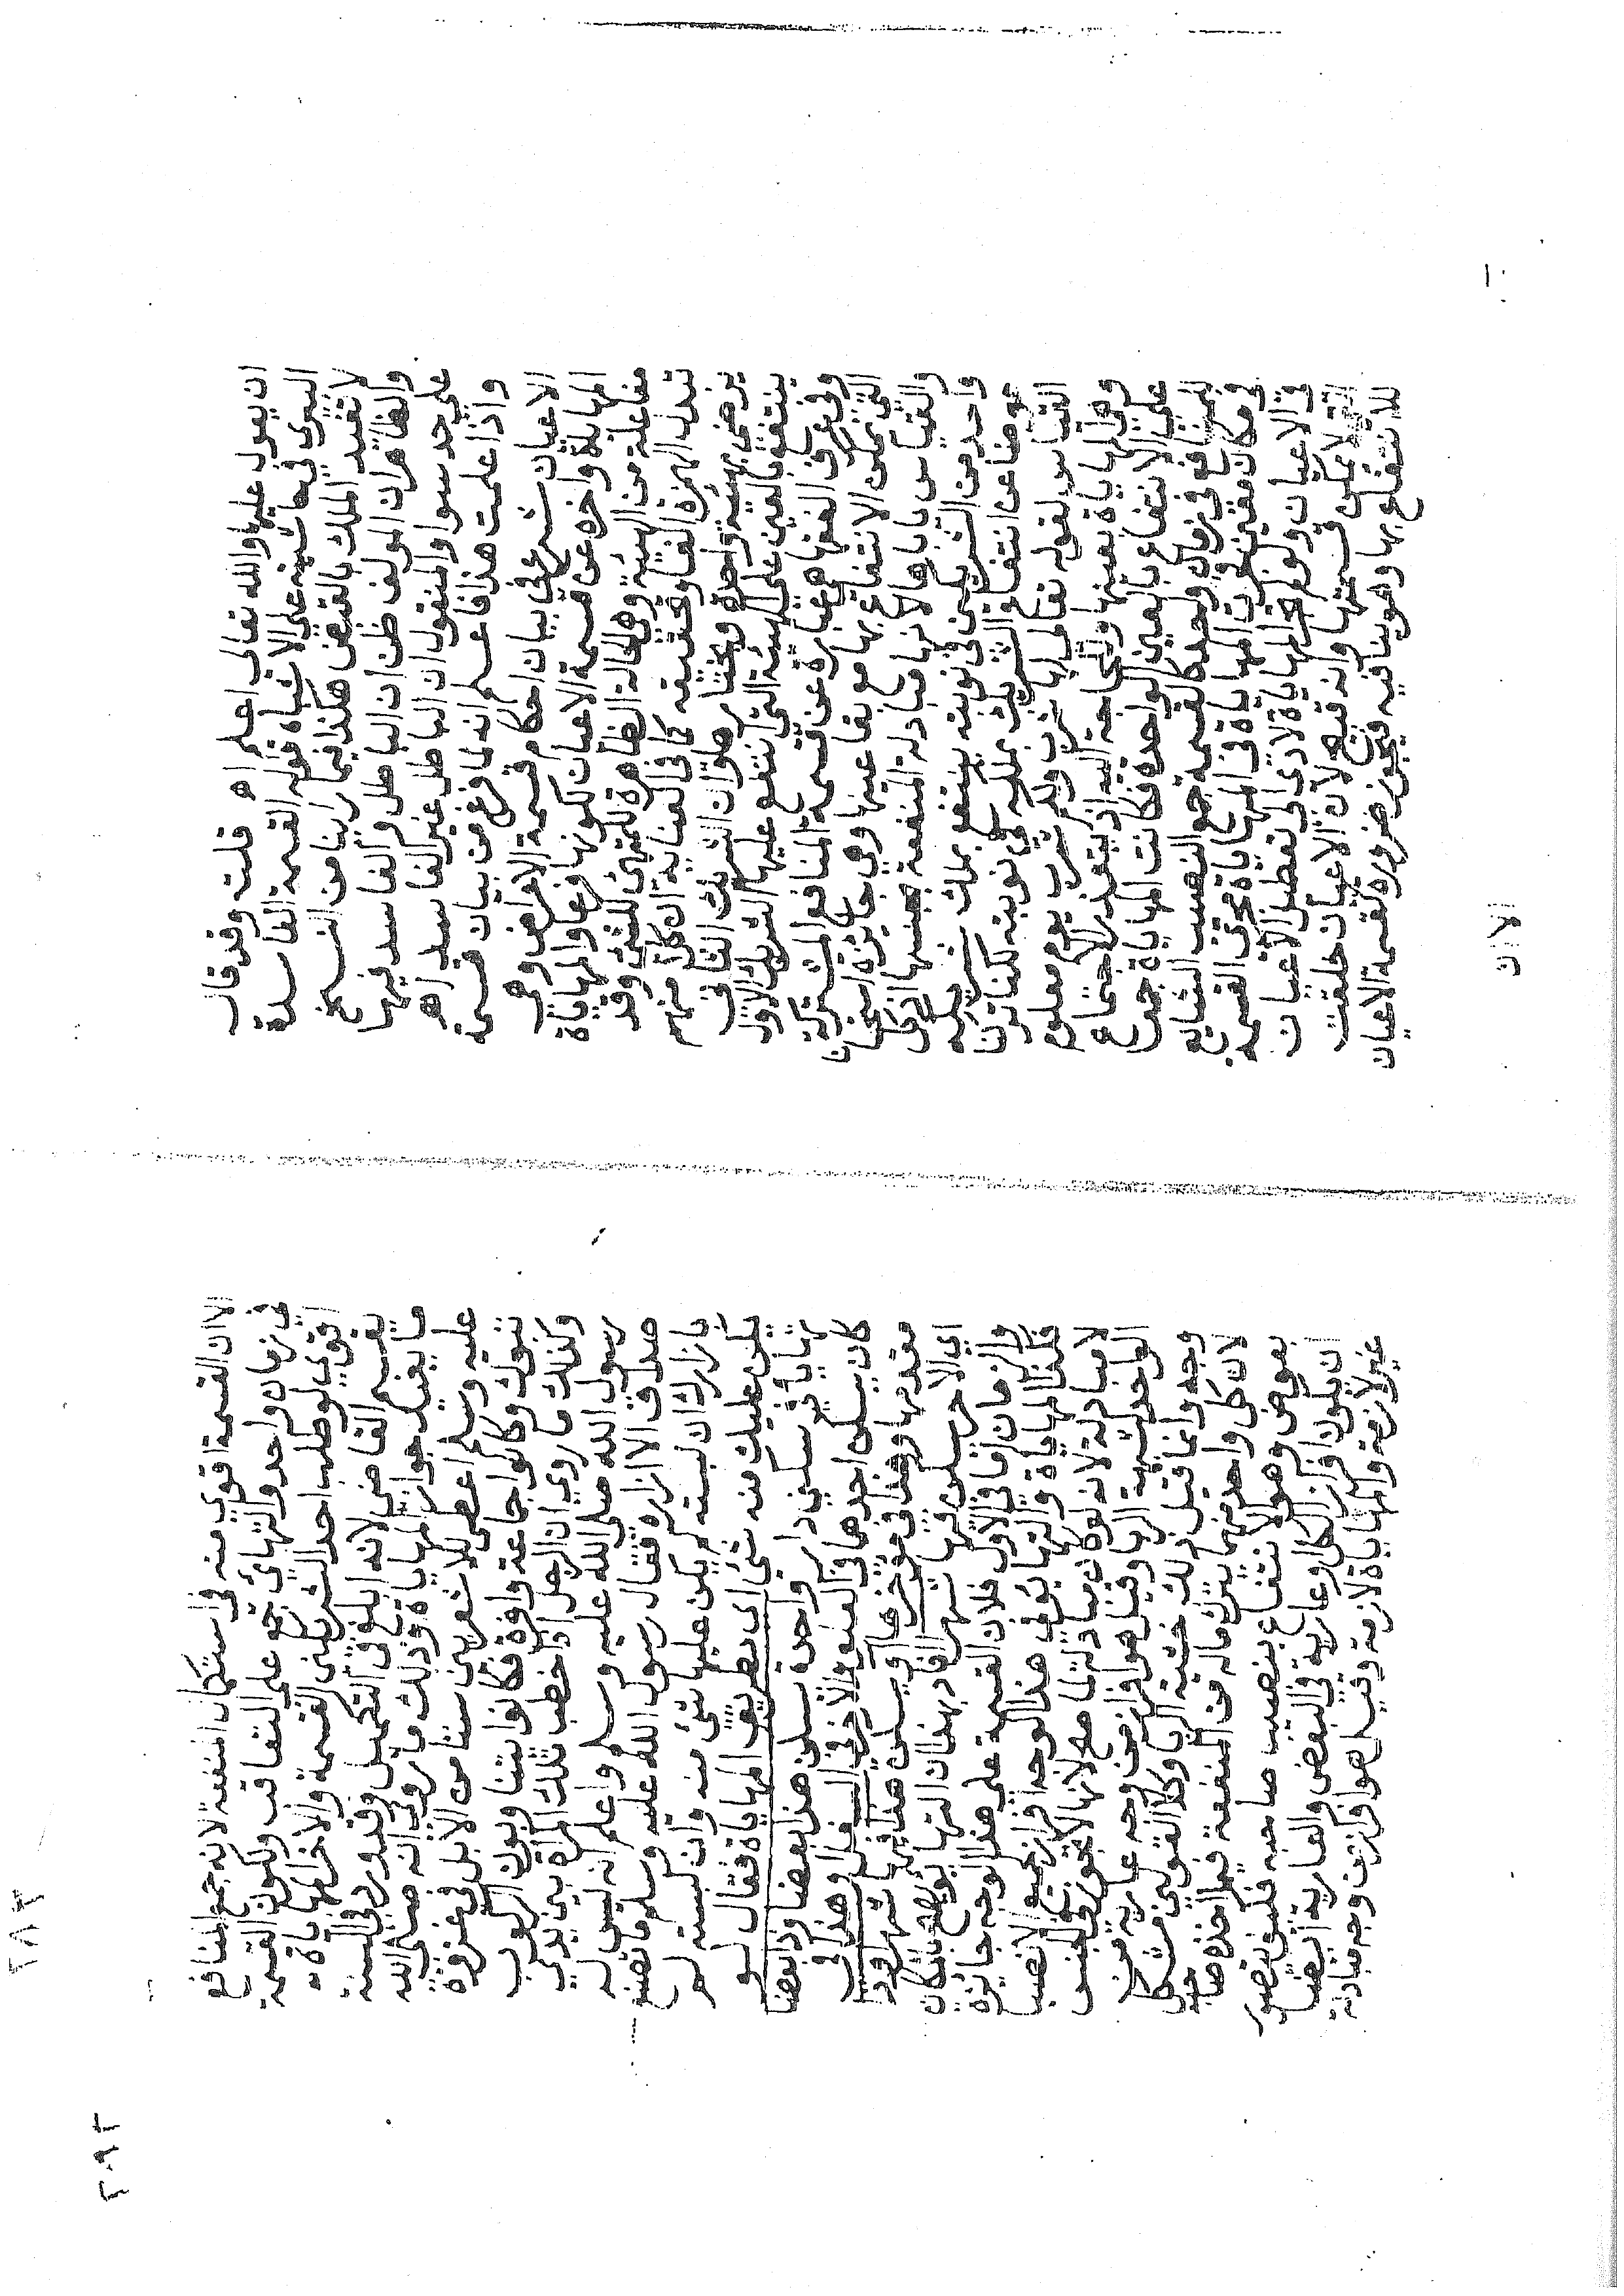 ان يعول عليها والله تعالى اعلم اه قلت وقد قال
البيري في حاشيته على الاشباه قوله القسمة الفاسدة
لا تفيد الملك بالقبض هكذا فيما راينا من النسخ
والظاهر ان المولف ظن ان الباطل والفاسد فيها
على حد سوا والمنقول ان الباطل غير الفاسد اه
واذا علمت هذا فاعلم انه لما فرغ من بيان قسمة
الاعيان شرع في بيان احكام قسمة الاعراض وهي
المهاياة واخره عن قسمة الاعيان لكونها فرعا والمهاياة
مفاعلة من الهيئة وهي الحالة الظاهرة للمتهيئ للشئ وقد
تبدل الهمزة الفا وتحقيقه كما في العناية ان كلا منهم
يرضى بهيئة واحدة ويختارها او ان الشريك الثاني
ينتفع بالعين على الهيئة التي انتفع عليها الشريك الاول
وفي عرف الفقها هي عبارة عن قسمة المنافع المشتركة
التي يمكن الانتفاع بها مع بقا عينها وهي جايزة استحسانا
والقياس ياباها لانها مبادلة المنفعة بجنسها اذ كل
واحد من الشريكين في نوبته ينتفع بملك شريكه
عوضا عن انتفاع الشريك بملكه في نوبته لكنا تركنا
القياس لقوله تعالى لها شرب ولكم شرب يوم معلوم
وهي المهاياة بعينها وللحاجة اليه اذ يتعذر الاجتماع
على الانتفاع بالعين الواحدة فكانت المهاياة جمع
المنافع في زمان واحد كالقسمة جمع النصيب الشايع
في مكان معين فجرت المهاياة في المنافع مجرى القسمة
في الاعيان ولو لم تجز المهاياة لادى الى تعطيل الاعيان
التي لا يمكن قسمتها وانه قبيح لان الاعيان خلقت
للانتفاع بها وهو ينافيه فيجوز ضرورة لقسمة الاعيان
الا ان
الا ان القسمة اقوى منه في استكمال المنفعة لانه جمع المنافع
في زمان واحد والتهايئ جمع على التعاقب ولكون القسمة
اقوى لو طلب احد الشريكين القسمة والاخر المهاياة
يقسم القاضي لانه ابلغ في التكميل وقد ورد في السنة
ما يفيد جواز المهاياة وذلك ما روى انه صلى الله
عليه وسلم اعطى للاشعريين ستا من الابل في غزوة
تبوك وكانوا جماعة وافرة فكانوا يتناوبون الركوب
وكذلك ما روى ان الرجل اذا خطب تلك المراة بين يدي
رسول الله صلى الله عليه وسلم واعلم انه ليس له
صداق الا ازاره فقال رسول الله عليه وسلم ما تصنع
بازارك ان لبسته لم يكن عليها شئ منه وان لبسته لم
يكن عليك منه شئ اي بطريق المهاياة فقال لو
تهايأ في سكنى دار واحدة يسكن هذا بعضا وذا بعضا
كان يسكن احدهما في العلو والاخر في السفل وهذا في
مقدمها وهذا في موخرها او يسكن هذا فيها شهرا وذا
اي الاخر يسكن فيها شهرا افاد بهذا ان التهايؤ يصح بالمكان
والزمان اما في الاول فلان القسمة على هذا الوجه جايزة
فكذا المهاياة والتهايؤ في هذا الوجه افراز لجميع الانصبا
لا مبادلة لانه لو كان مبادلة لما صح لانها لا تجوز في الجنس
الواحد لشبهة الربا وقيل هو افراز من وجه عارية من
وجه وانما قيل ذلك خشية الربا وكلا القولين مشكل
لان كل واحد منهما يترك ماله من المنفعة فيما اخذه صاحبه
بعوض وهو الانتفاع بنصيب صاحبه فكيف يتصور
ان يكون افراز الكل او عارية في البعض والعارية ايضا
غير لازمة والمهاياة لازمة وقيل هو افراز من وجه مبادلة
٢٩٢